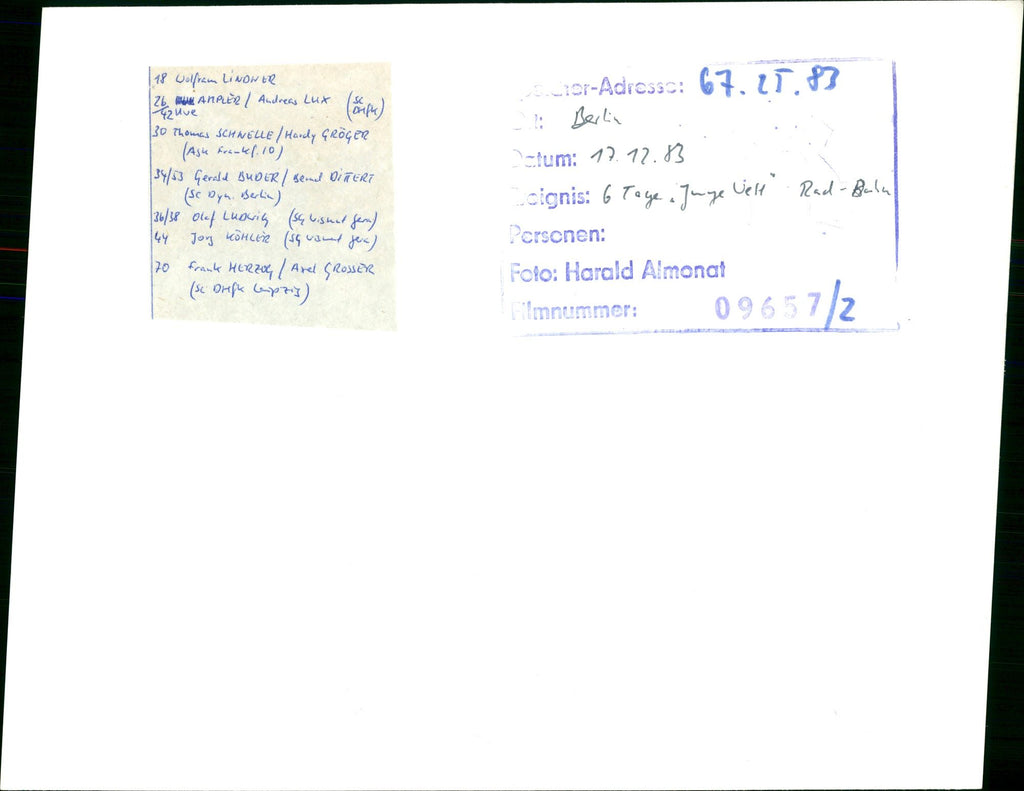 18 Wolfram LINDNER
26 AMPLER / Andreas LUX (SC DHfK)
42 Uwe
30 Thomas SCHNELLE / Hardy GRÖGER
(ASK Frankf. /O)
34/53 Gerald BUDER / Bernd DITTERT
(SC Dyn. Berlin)
36/38 Olaf LUDWIG (SG Wismut Gera)
44 Jörg KÖHLER (SG Wismut Gera)
70 Frank HERZOG / Axel GROSSER
(SC DHfK Leipzig)
-Adresse: 67. 83
Berlin
Datum: 17.12.83
Ereignis: 6 Tage "Junge Welt" Rad - Bahn
Personen:
Foto: Harald Almonat
Filmnummer: 09657/2